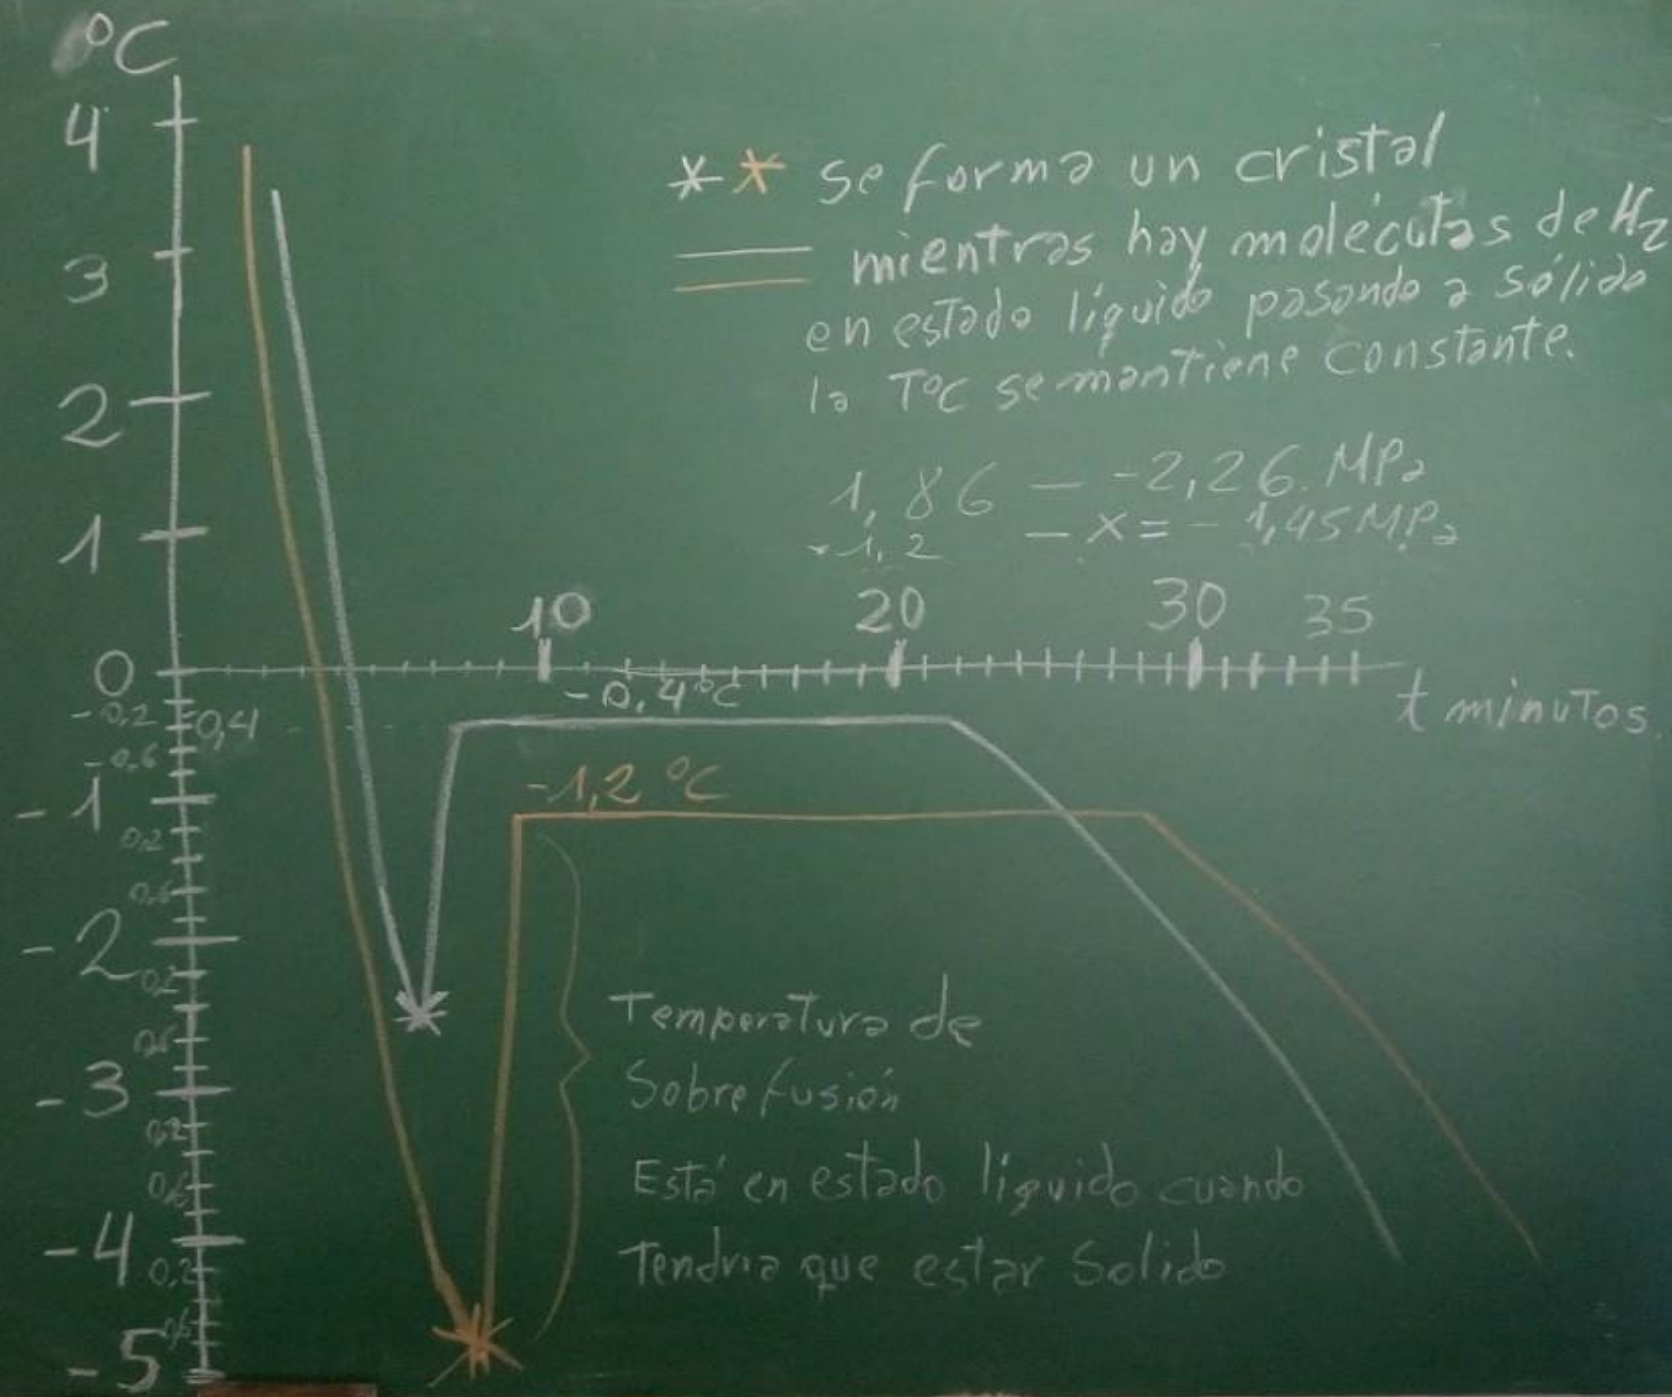 °C
4
3
2
1
0
-0,2
0,4
-0,6
-1
0,2
0,6
-2
0,2
0,6
-3
0,2
0,6
-4
0,2
0,6
-5
** se forma un cristal
mientras hay moléculas de H2
en estado líquido pasando a sólido
la T°C se mantiene constante.
1,86 — -2,26 MPa
-1,2 — x = - 1,45 MPa
10 20 30 35
t minutos.
-0,4°C
-1,2 °C
Temperatura de
Sobrefusión
Está en estado líquido cuando
Tendria que estar Solido